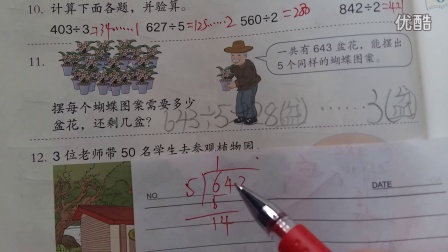 YOUKU 优酷
10. 计算下面各题，并验算。
403÷3=134……1 627÷5=125……2 560÷2=280 842÷2=421
11.
一共有 643 盆花，能摆出
5 个同样的蝴蝶图案。
摆每个蝴蝶图案需要多少
盆花，还剩几盆？
643÷5=128(盆)……3(盆)
12. 3 位老师带 50 名学生去参观植物园
1
5 643
NO
DATE
14